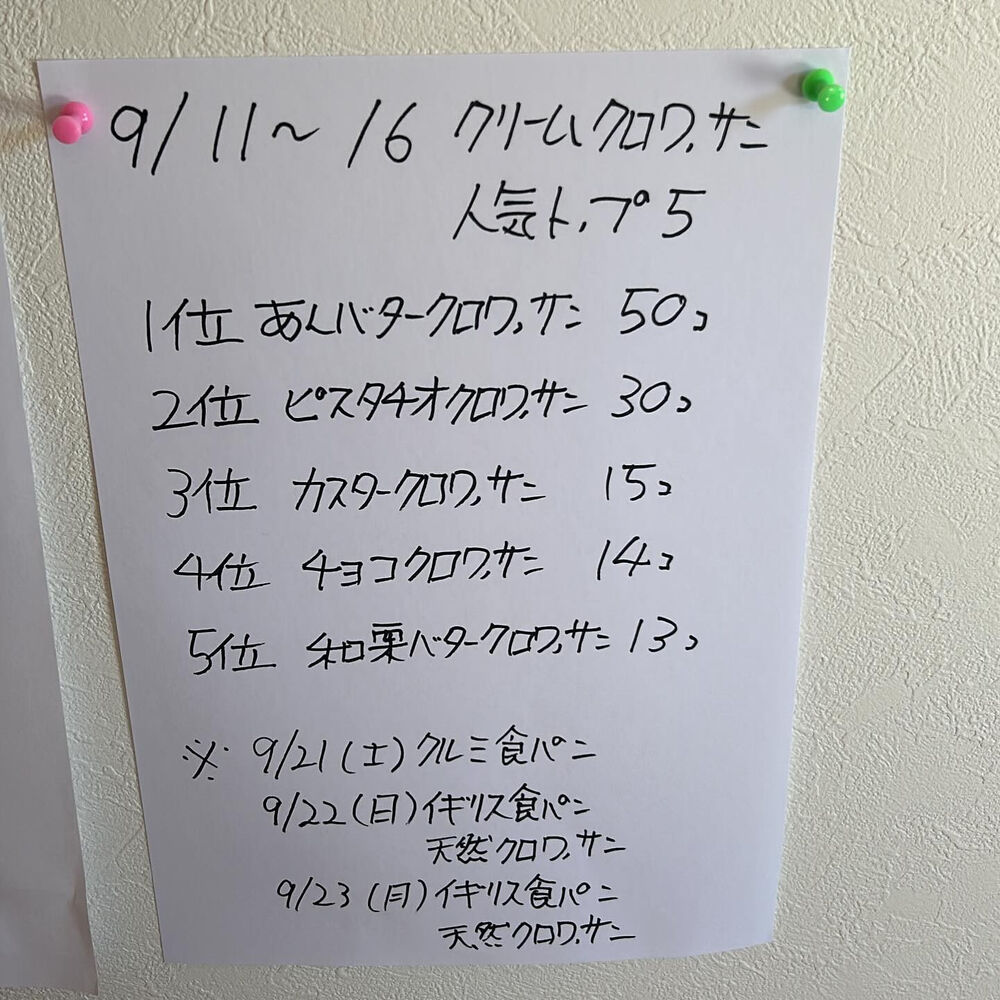 9/11～16 クリームクロワッサン
人気トップ5
1位 あんバタークロワッサン 50コ
2位 ピスタチオクロワッサン 30コ
3位 カスタークロワッサン 15コ
4位 チョコクロワッサン 14コ
5位 和栗バタークロワッサン 13コ
※ 9/21(土)クルミ食パン
9/22(日)イギリス食パン
天然クロワッサン
9/23(月)イギリス食パン
天然クロワッサン